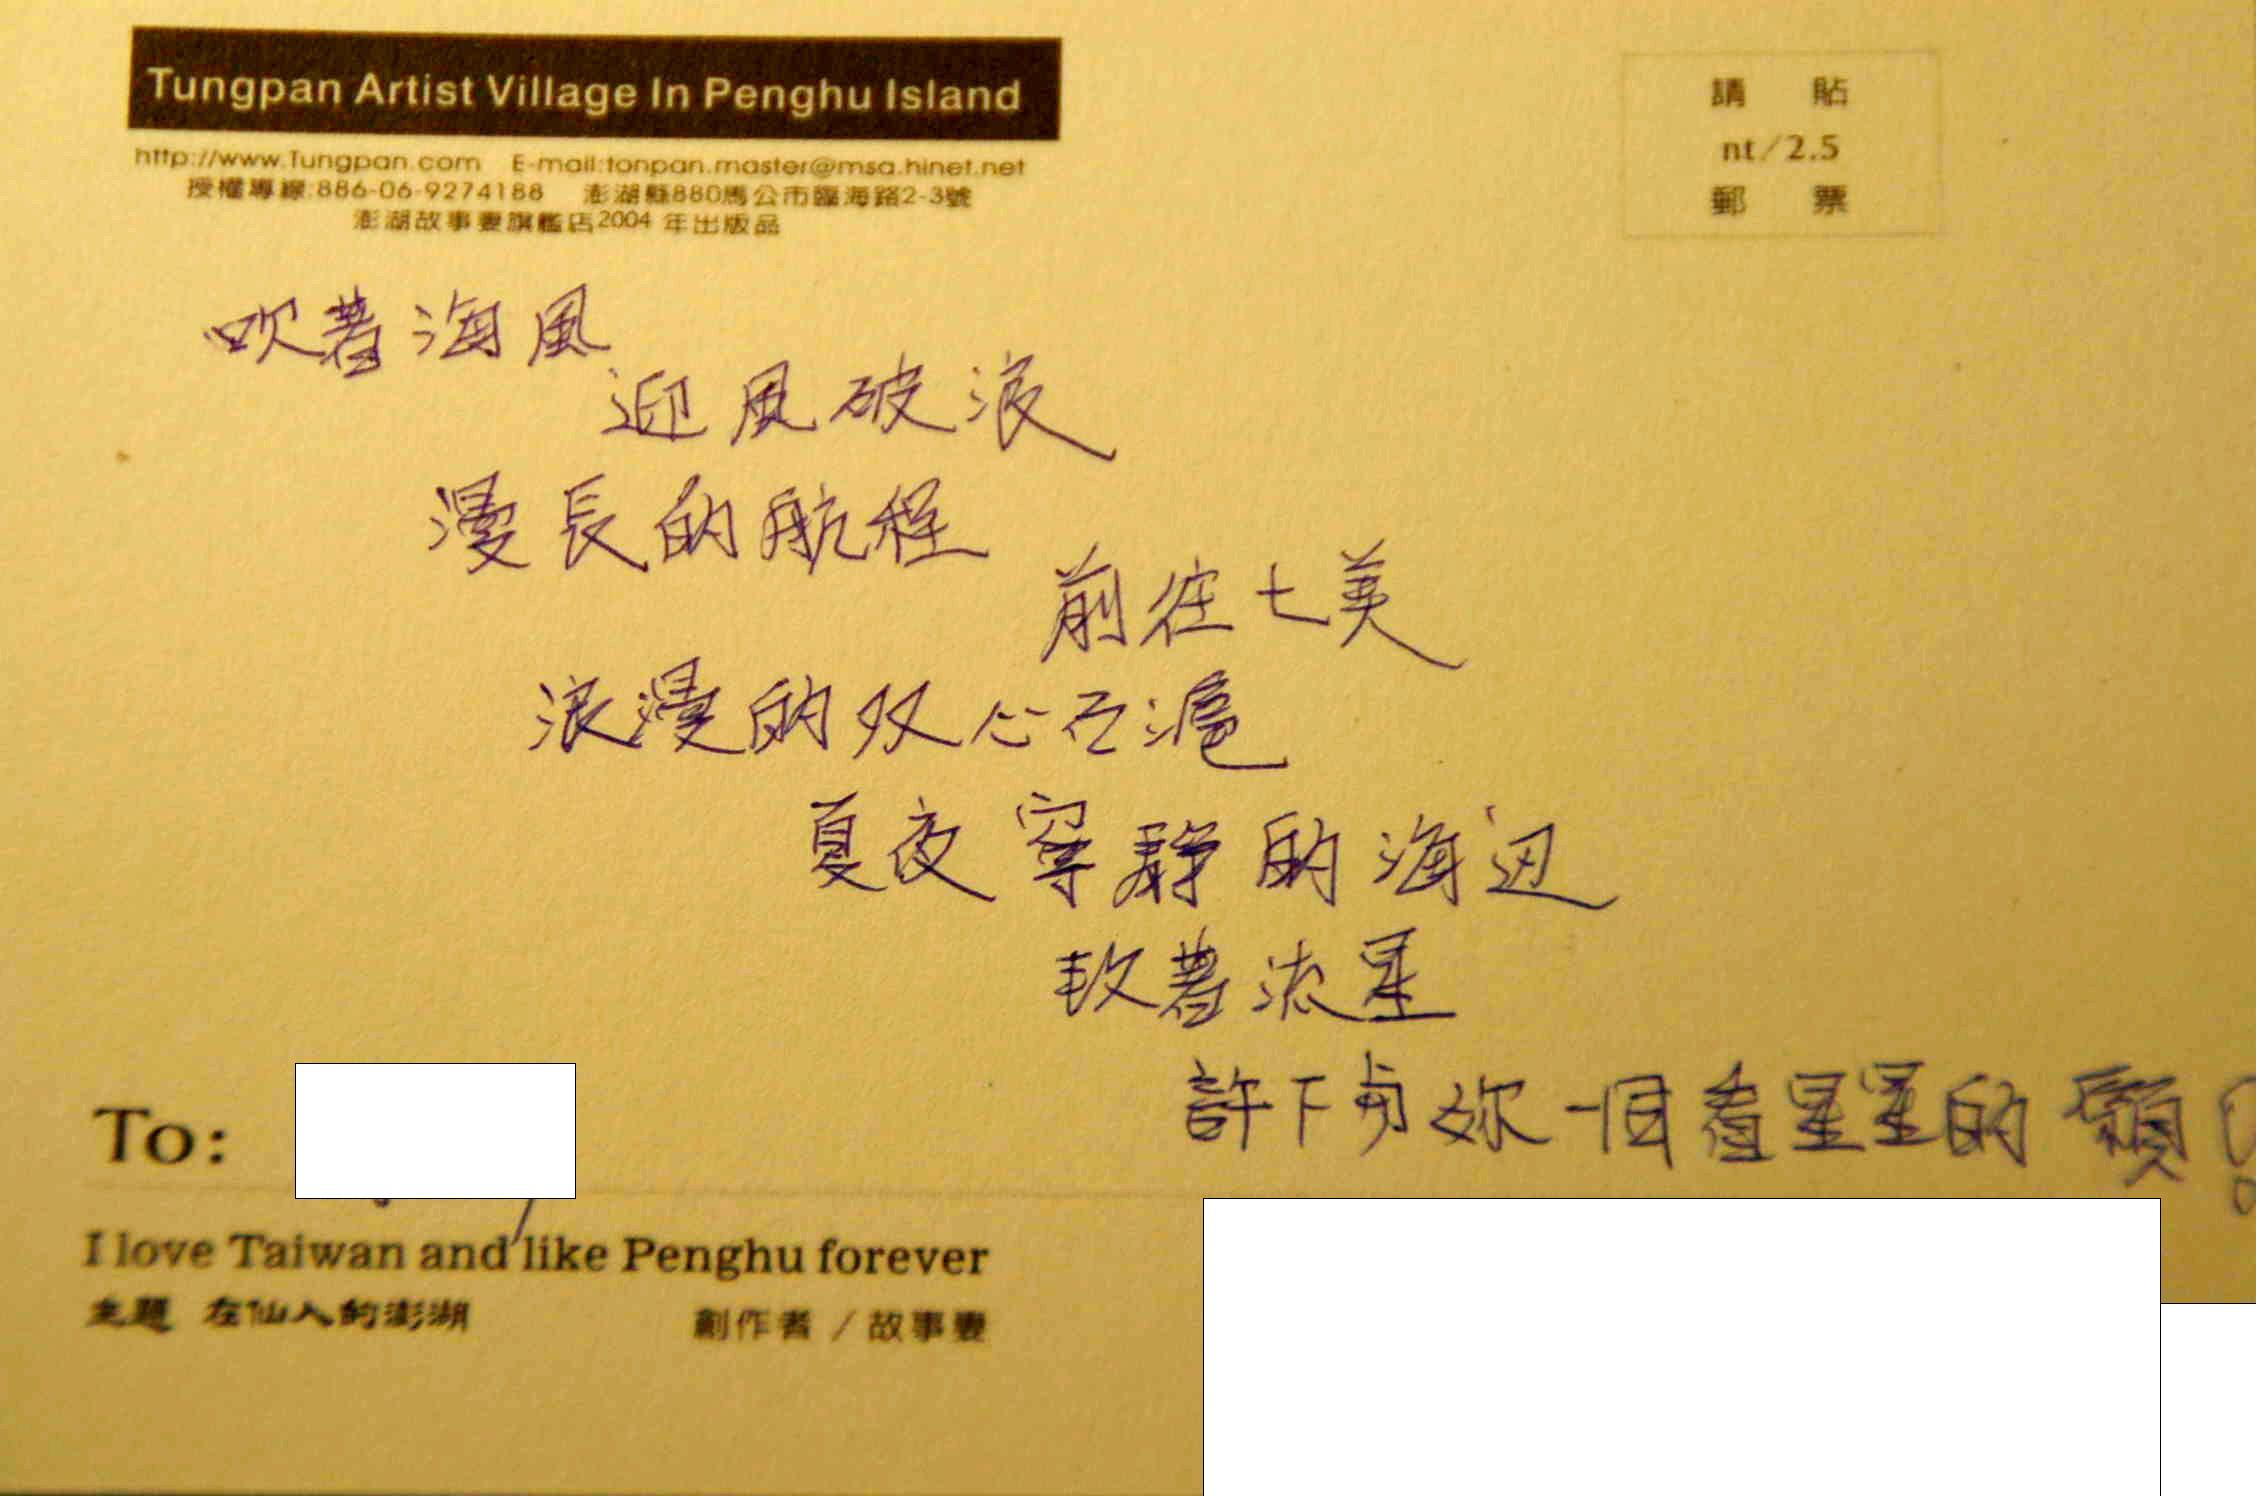 Tungpan Artist Village In Penghu Island
http://www.Tungpan.com E-mail:tonpan.master@msa.hinet.net
授權專線:886-06-9274188 澎湖縣880馬公市臨海路2-3號
澎湖故事妻旗艦店2004 年出版品
請 貼
nt/2.5
郵 票
吹著海風
迎風破浪
漫長的航程
前往七美
浪漫的双心石滬
夏夜寧靜的海边
軟著流星
許下与妳一個看星星的願!
To:
I love Taiwan and like Penghu forever
主題 在仙人的澎湖
創作者 / 故事妻